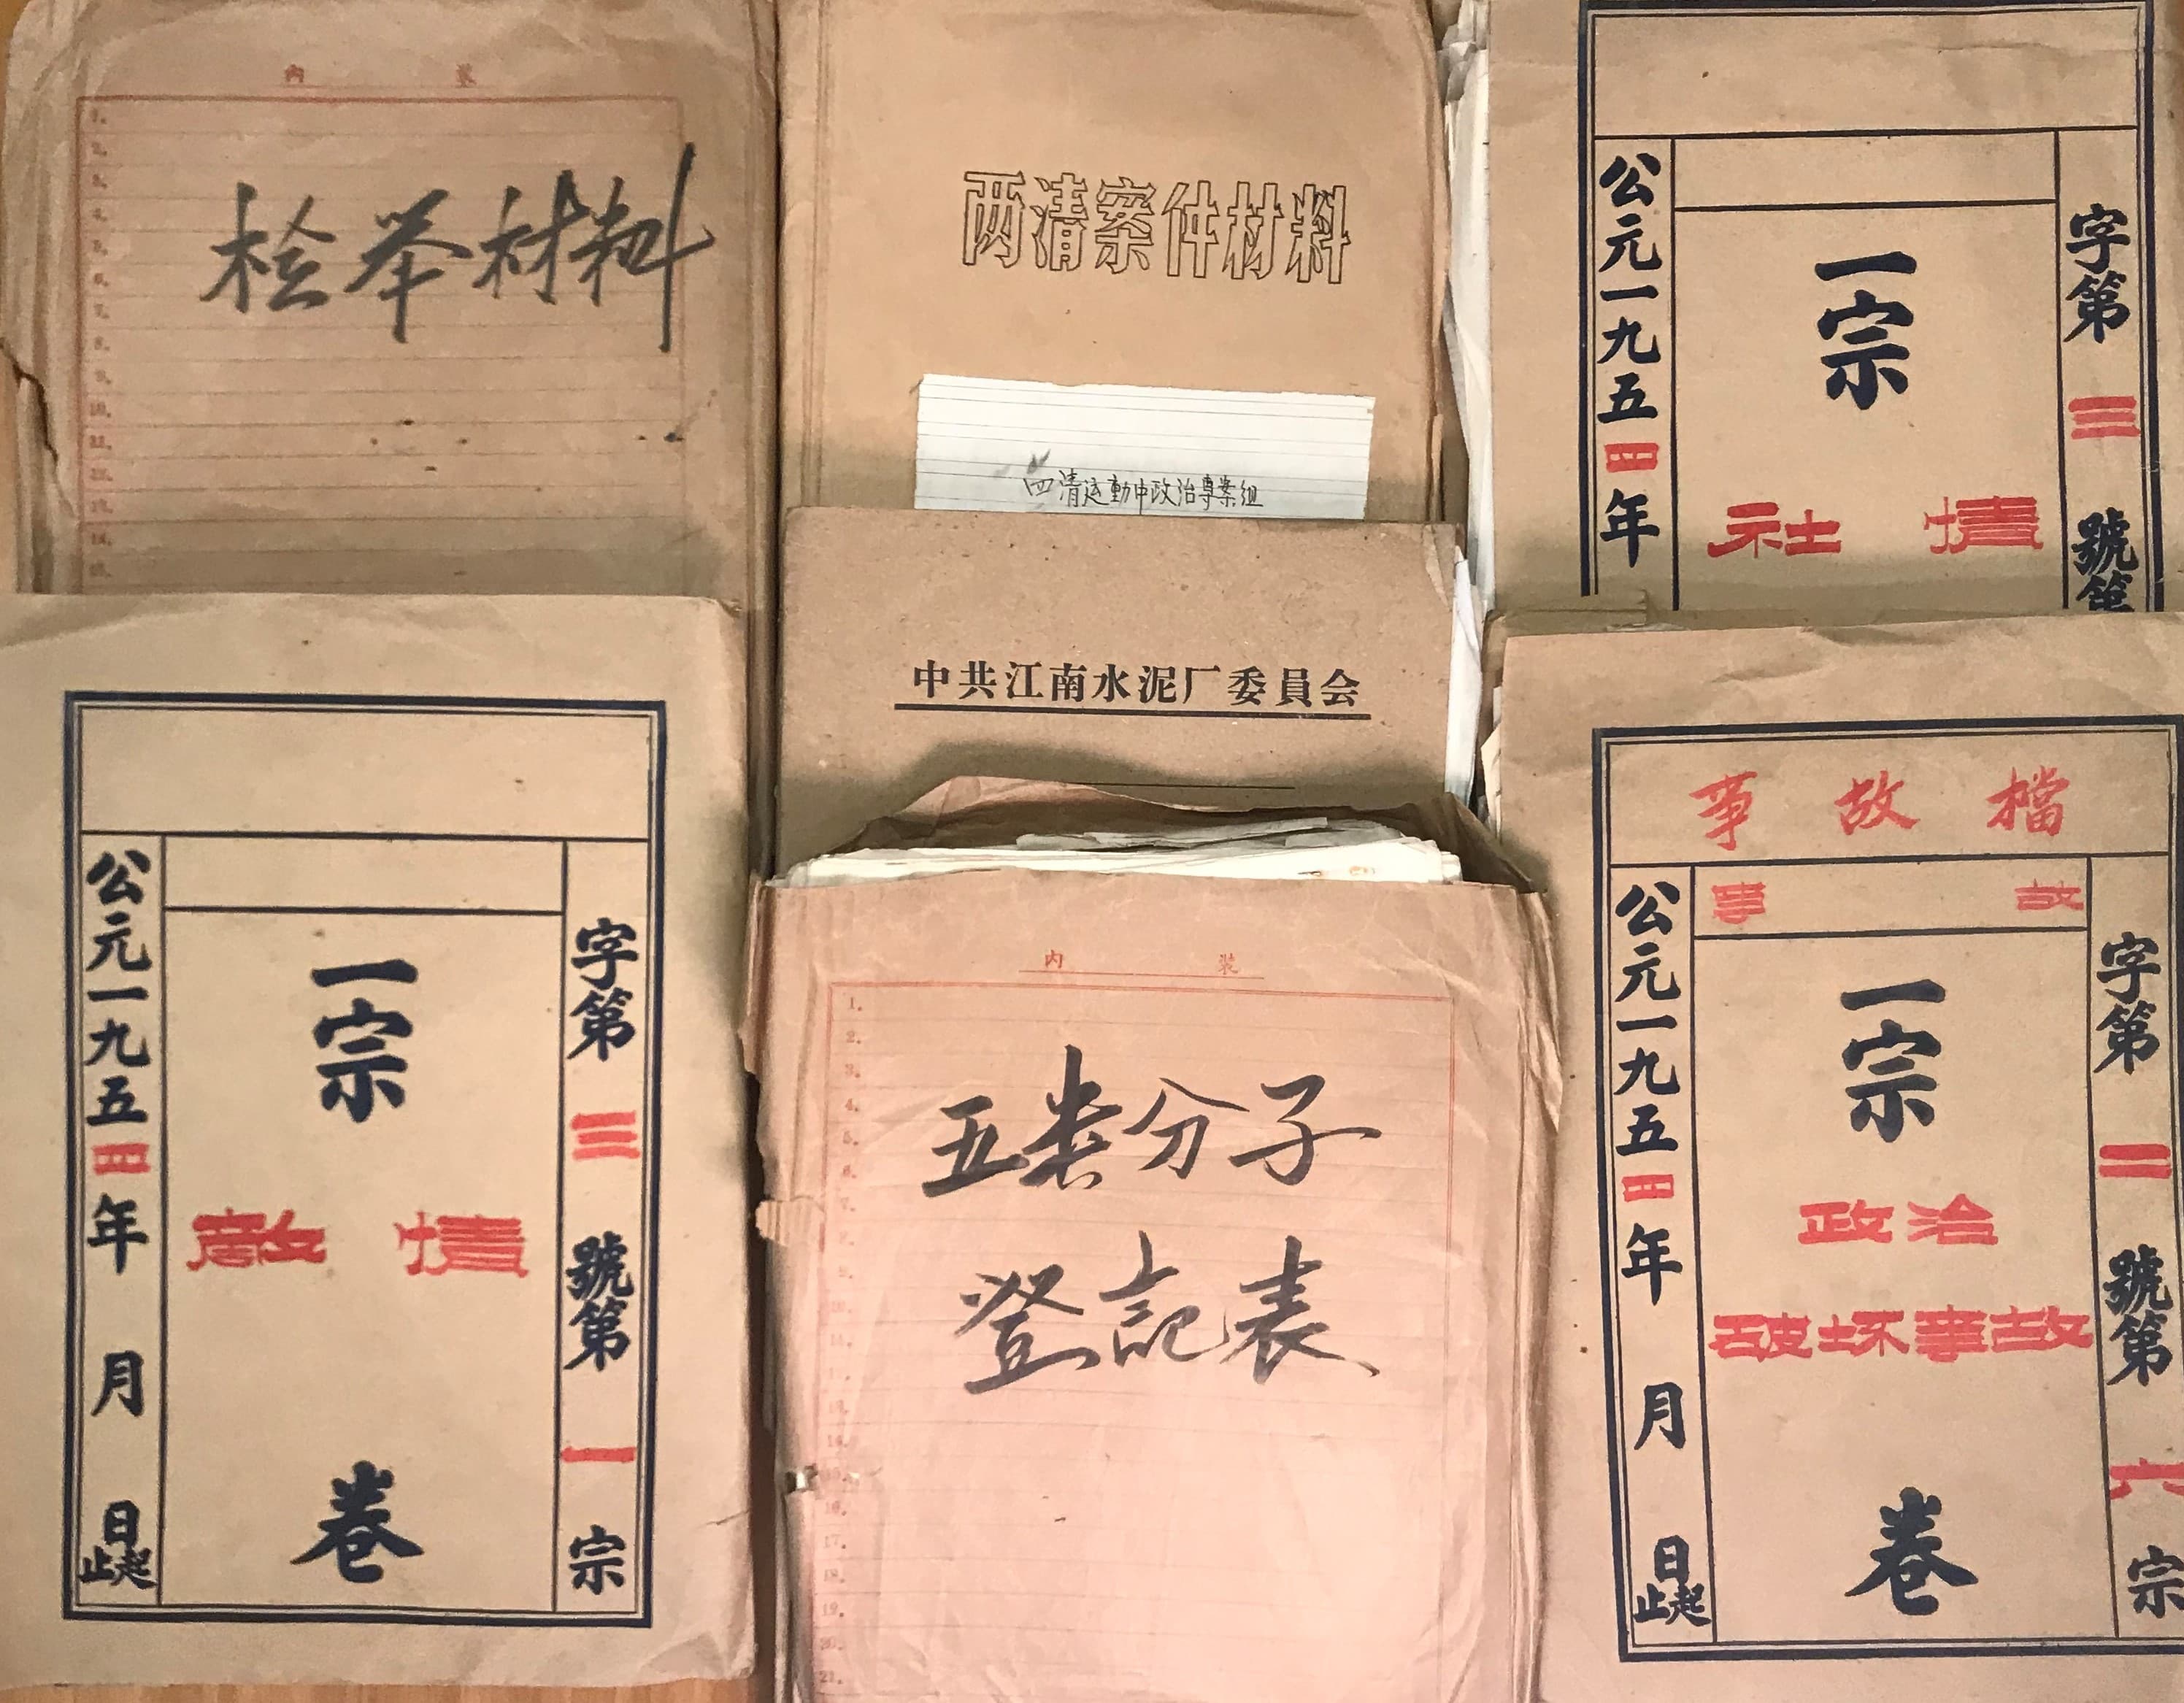 内 装
1.
2.
3.
4.
5.
6.
7.
8.
9.
10.
11.
12.
13.
14.
15.
检举材料
两清案件材料
四清运動中政治專案组
中共江南水泥厂委員会
字第三號第
一宗
社情
公元一九五四年
字第三號第一宗
一宗
敵情
卷
公元一九五四年月日起止
内 装
1.
2.
3.
4.
5.
6.
7.
8.
9.
10.
11.
12.
13.
14.
15.
16.
17.
18.
19.
20.
21.
五类分子
登記表
事故檔
事故
字第二號第六宗
一宗
政治
破坏事故
卷
公元一九五四年月日起止